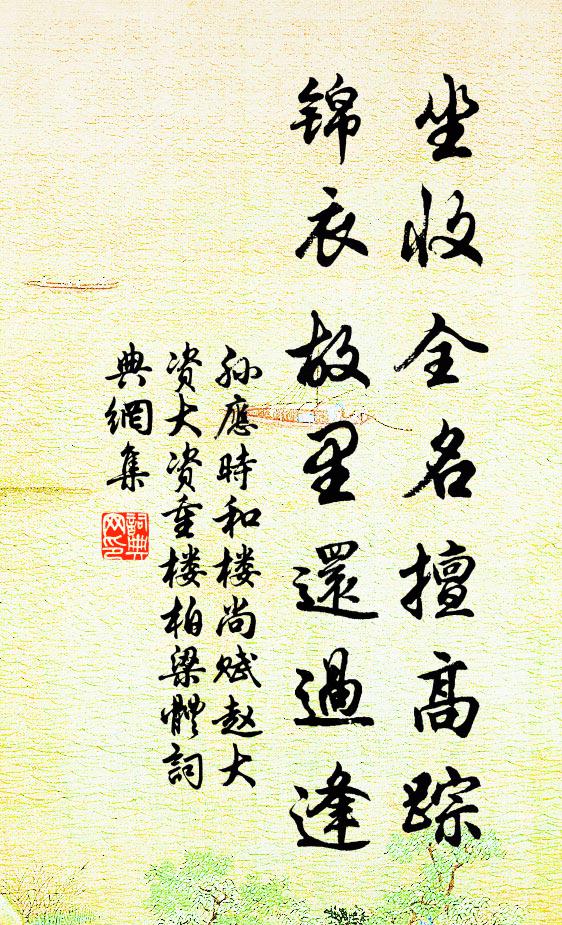 坐收全名擅高踪
锦衣故里還過逢
孙應時和楼尚赋赵大
资大资重楼柏梁體詞
典網集
詞典网印